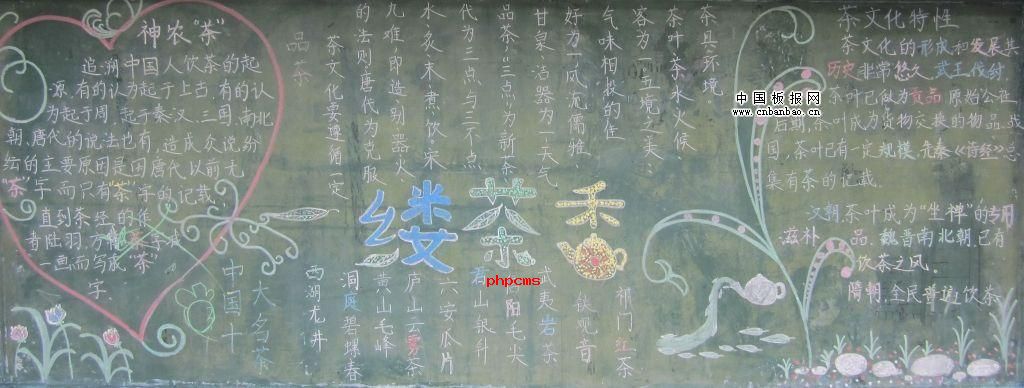 神农"茶"
追溯中国人饮茶的起
源,有的认为起于上古,有的认
为起于周,起于秦汉、三国、南北
朝、唐代的说法也有,造成众说纷
纭的主要原因是因唐代以前无
"茶"字,而只有"荼"字的记载,
直到茶经的作
者陆羽,方将荼字减
一画而写成"茶"
字。
品茶
茶文化要遵循一定
的法则唐代为克服
九难,即造、别、器、火、
水、炙、末、煮、饮。宋
代为三点与三不点
品茶,"三点"为新茶、
甘泉、洁器为一,天气
好为一,风流儒雅、
气味相投的佳
客为一
茶叶、茶水、火候、
茶具、环境。
一缕茶香
中国十
大名茶
西湖龙井
洞庭碧螺春
黄山毛峰
庐山云雾茶
六安瓜片
君山银针
信阳毛尖
武夷岩茶
铁观音
祁门红茶
茶文化特性
茶文化的形成和发展其
历史非常悠久,武王伐纣,
茶叶已做为贡品原始公社
后期,茶叶成为货物交换的物品,战
国,茶叶已有一定规模,先秦《诗经》总
集有茶的记载。
汉朝,茶叶成为"坐禅"的专用
滋补品,魏晋南北朝,已有
饮茶之风。
隋朝,全民普遍饮茶
中国板报网
www.cnbanbao.cn
phpcms